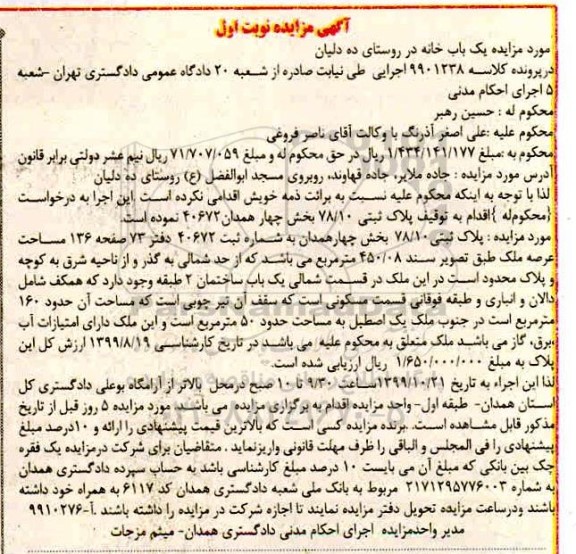 آگهی مزایده نوبت اول
مورد مزایده یک باب خانه در روستای ده دلیان
درپرونده کلاسه ۹۹۰۱۲۳۸ اجرایی طی نیابت صادره از شعبه ۲۰ دادگاه عمومی دادگستری تهران -شعبه
۵ اجرای احکام مدنی
محکوم له : حسین رهبر
محکوم علیه :علی اصغر آذرنگ با وکالت آقای ناصر فروغی
محکوم به :مبلغ ۱/۴۳۴/۱۴۱/۱۷۷ ریال در حق محکوم له و مبلغ ۷۱/۷۰۷/۰۵۹ ریال نیم عشر دولتی برابر قانون
آدرس مورد مزایده : جاده ملایر، جاده قهاوند، روبروی مسجد ابوالفضل (ع) روستای ده دلیان
لذا با توجه به اینکه محکوم علیه نسبت به برائت ذمه خویش اقدامی نکرده است .این اجرا به درخواست
{محکوم‌له }اقدام به توقیف پلاک ثبتی ۷۸/۱۰ بخش چهار همدان۴۰۶۷۲ نموده است.
مورد مزایده : پلاک ثبتی ۷۸/۱۰ بخش چهارهمدان به شماره ثبت ۴۰۶۷۲ دفتر ۷۳ صفحه ۱۳۶ مساحت
عرصه ملک طبق تصویر سند ۴۵۰/۰۸ مترمربع می باشد که از حد شمالی به گذر و از ناحیه شرق به کوچه
و پلاک محدود است در این ملک در قسمت شمالی یک باب ساختمان ۲ طبقه وجود دارد که همکف شامل
دالان و انباری و طبقه فوقانی قسمت مسکونی است که سقف آن تیر چوبی است که مساحت آن حدود ۱۶۰
مترمربع است در جنوب ملک یک اصطبل به مساحت حدود ۵۰ مترمربع است و این ملک دارای امتیازات آب
،برق، گاز می باشد ملک متعلق به محکوم علیه می باشد در تاریخ کارشناسی ۱۳۹۹/۸/۱۹ ارزش کل این
پلاک به مبلغ ۱/۶۵۰/۰۰۰/۰۰۰ ریال ارزیابی شده است.
لذا این اجراء به تاریخ ۱۳۹۹/۱۰/۲۱ساعت ۹/۳۰ تا ۱۰ صبح درمحل بالاتر از آرامگاه بوعلی دادگستری کل
استان همدان- طبقه اول- واحد مزایده اقدام به برگزاری مزایده می باشد . مورد مزایده ۵ روز قبل از تاریخ
مذکور قابل مشاهده است .برنده مزایده کسی است که بالاترین قیمت پیشنهادی را ارائه و ۱۰درصد مبلغ
پیشنهادی را فی المجلس و الباقی را ظرف مهلت قانونی واریزنماید . متقاضیان برای شرکت درمزایده یک فقره
چک بین بانکی که مبلغ آن می بایست ۱۰ درصد مبلغ کارشناسی باشد به حساب سپرده دادگستری همدان
به شماره ۲۱۷۱۲۹۵۷۷۶۰۰۳ مربوط به بانک ملی شعبه دادگستری همدان کد ۶۱۱۷ به همراه خود داشته
باشند ودرساعت مزایده تحویل دفتر مزایده نمایند تا اجازه شرکت در مزایده را داشته باشند .آ-۹۹۱۰۲۷۶
مدیر واحدمزایده اجرای احکام مدنی دادگستری همدان- میثم مزجات